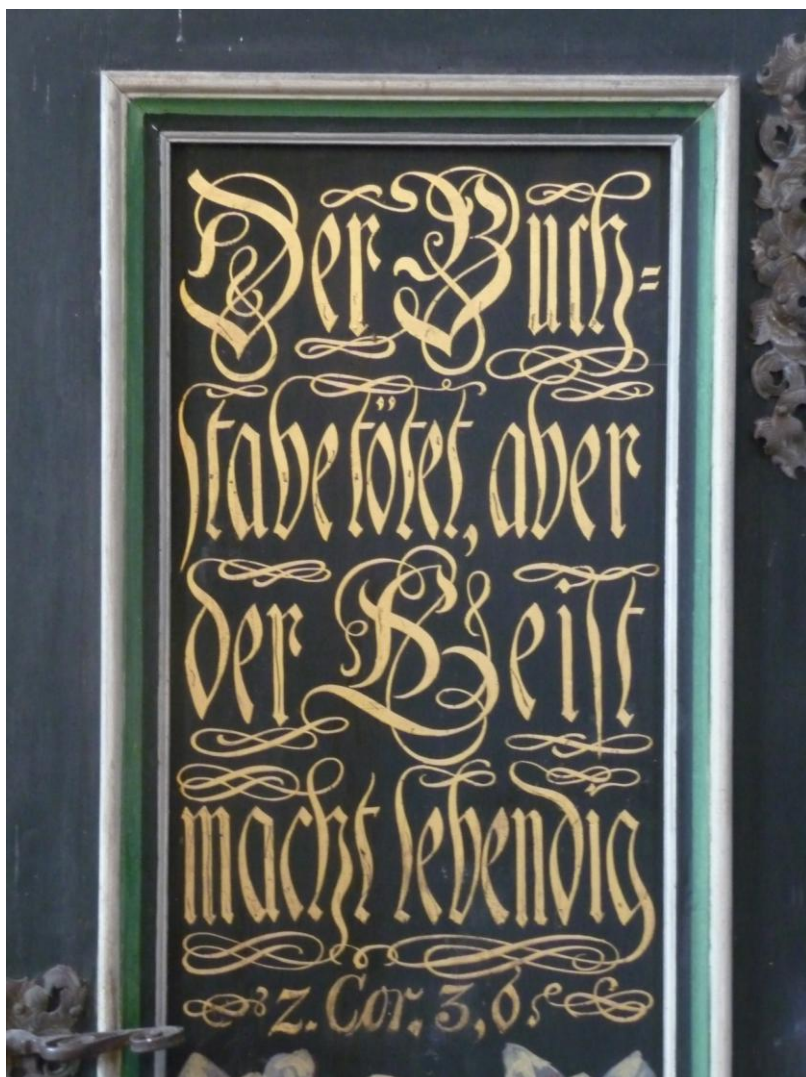 Der Buch=
stabe tötet, aber
der Geist
macht lebendig
2. Cor. 3, 6.